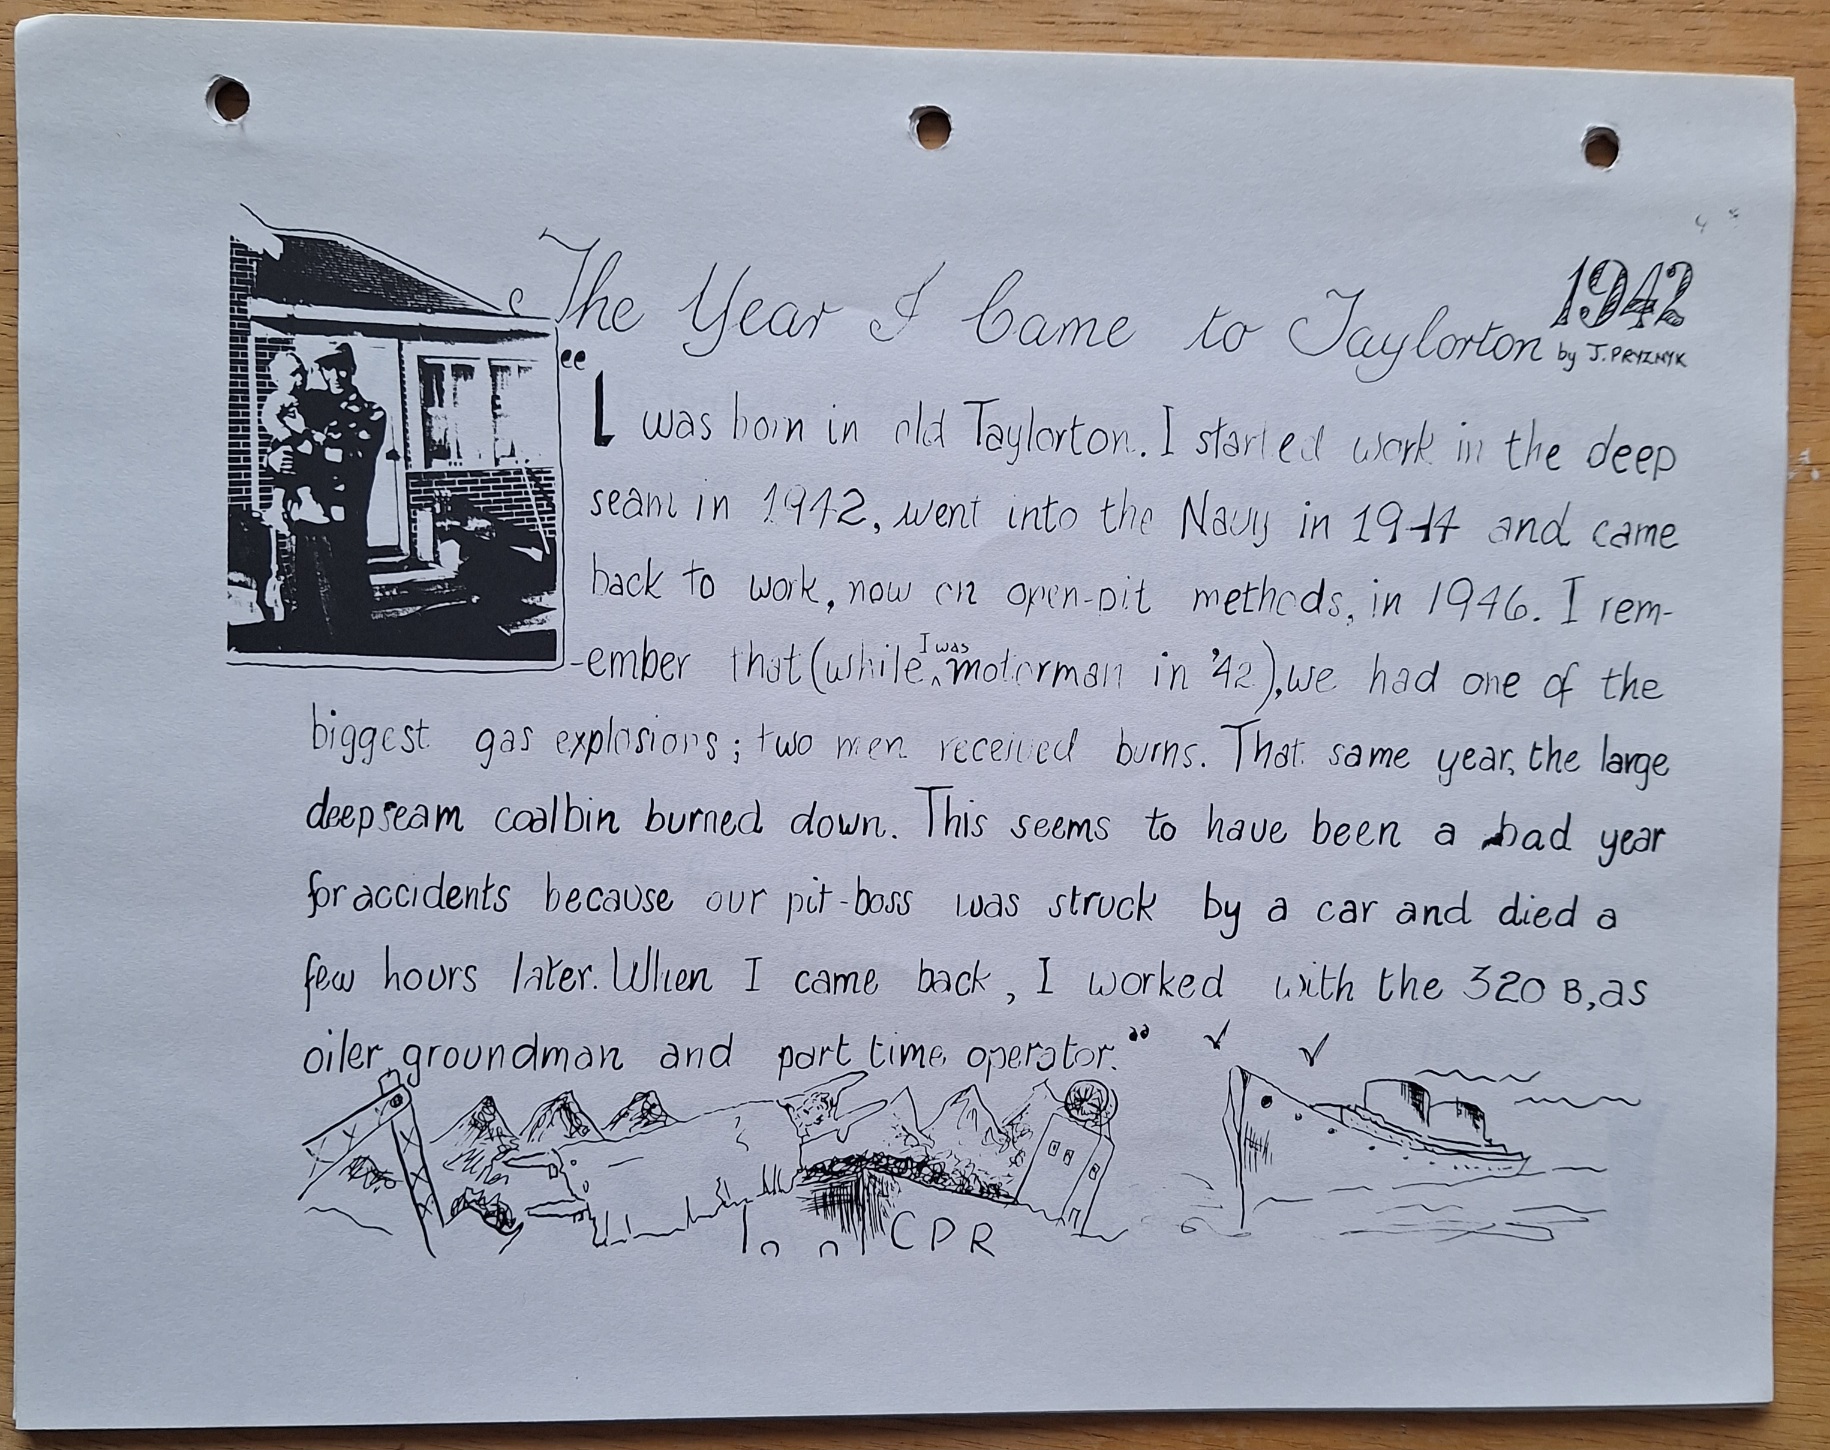 The Year I Came to Taylorton 1942
by J. PRYZNYK
"I was born in old Taylorton. I started work in the deep
seam in 1942, went into the Navy in 1944 and came
back to work, now on open-pit methods, in 1946. I rem-
-ember that (while I was motorman in '42), we had one of the
biggest gas explosions; two men received burns. That same year, the large
deepseam coalbin burned down. This seems to have been a bad year
for accidents because our pit-boss was struck by a car and died a
few hours later. When I came back, I worked with the 320 B, as
oiler groundman and part time operator."
CPR